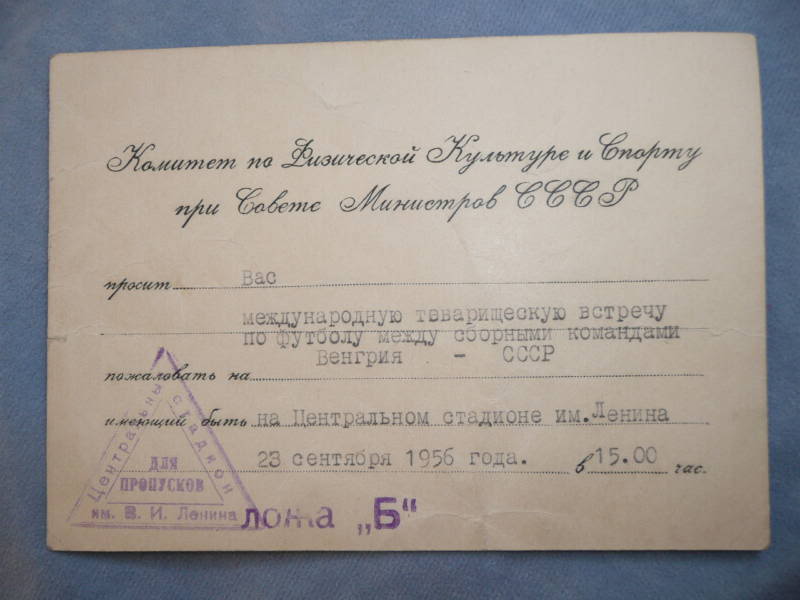 Комитет по Физической Культуре и Спорту
при Совете Министров СССР
просит Вас
международную товарищескую встречу
по футболу между сборными командами
Венгрия - СССР
пожаловать на
имеющий быть на Центральном стадионе им.Ленина
23 сентября 1956 года. в 15.00 час.
Центральный стадион
ДЛЯ
ПРОПУСКОВ
им. В. И. Ленина
ложа „Б“